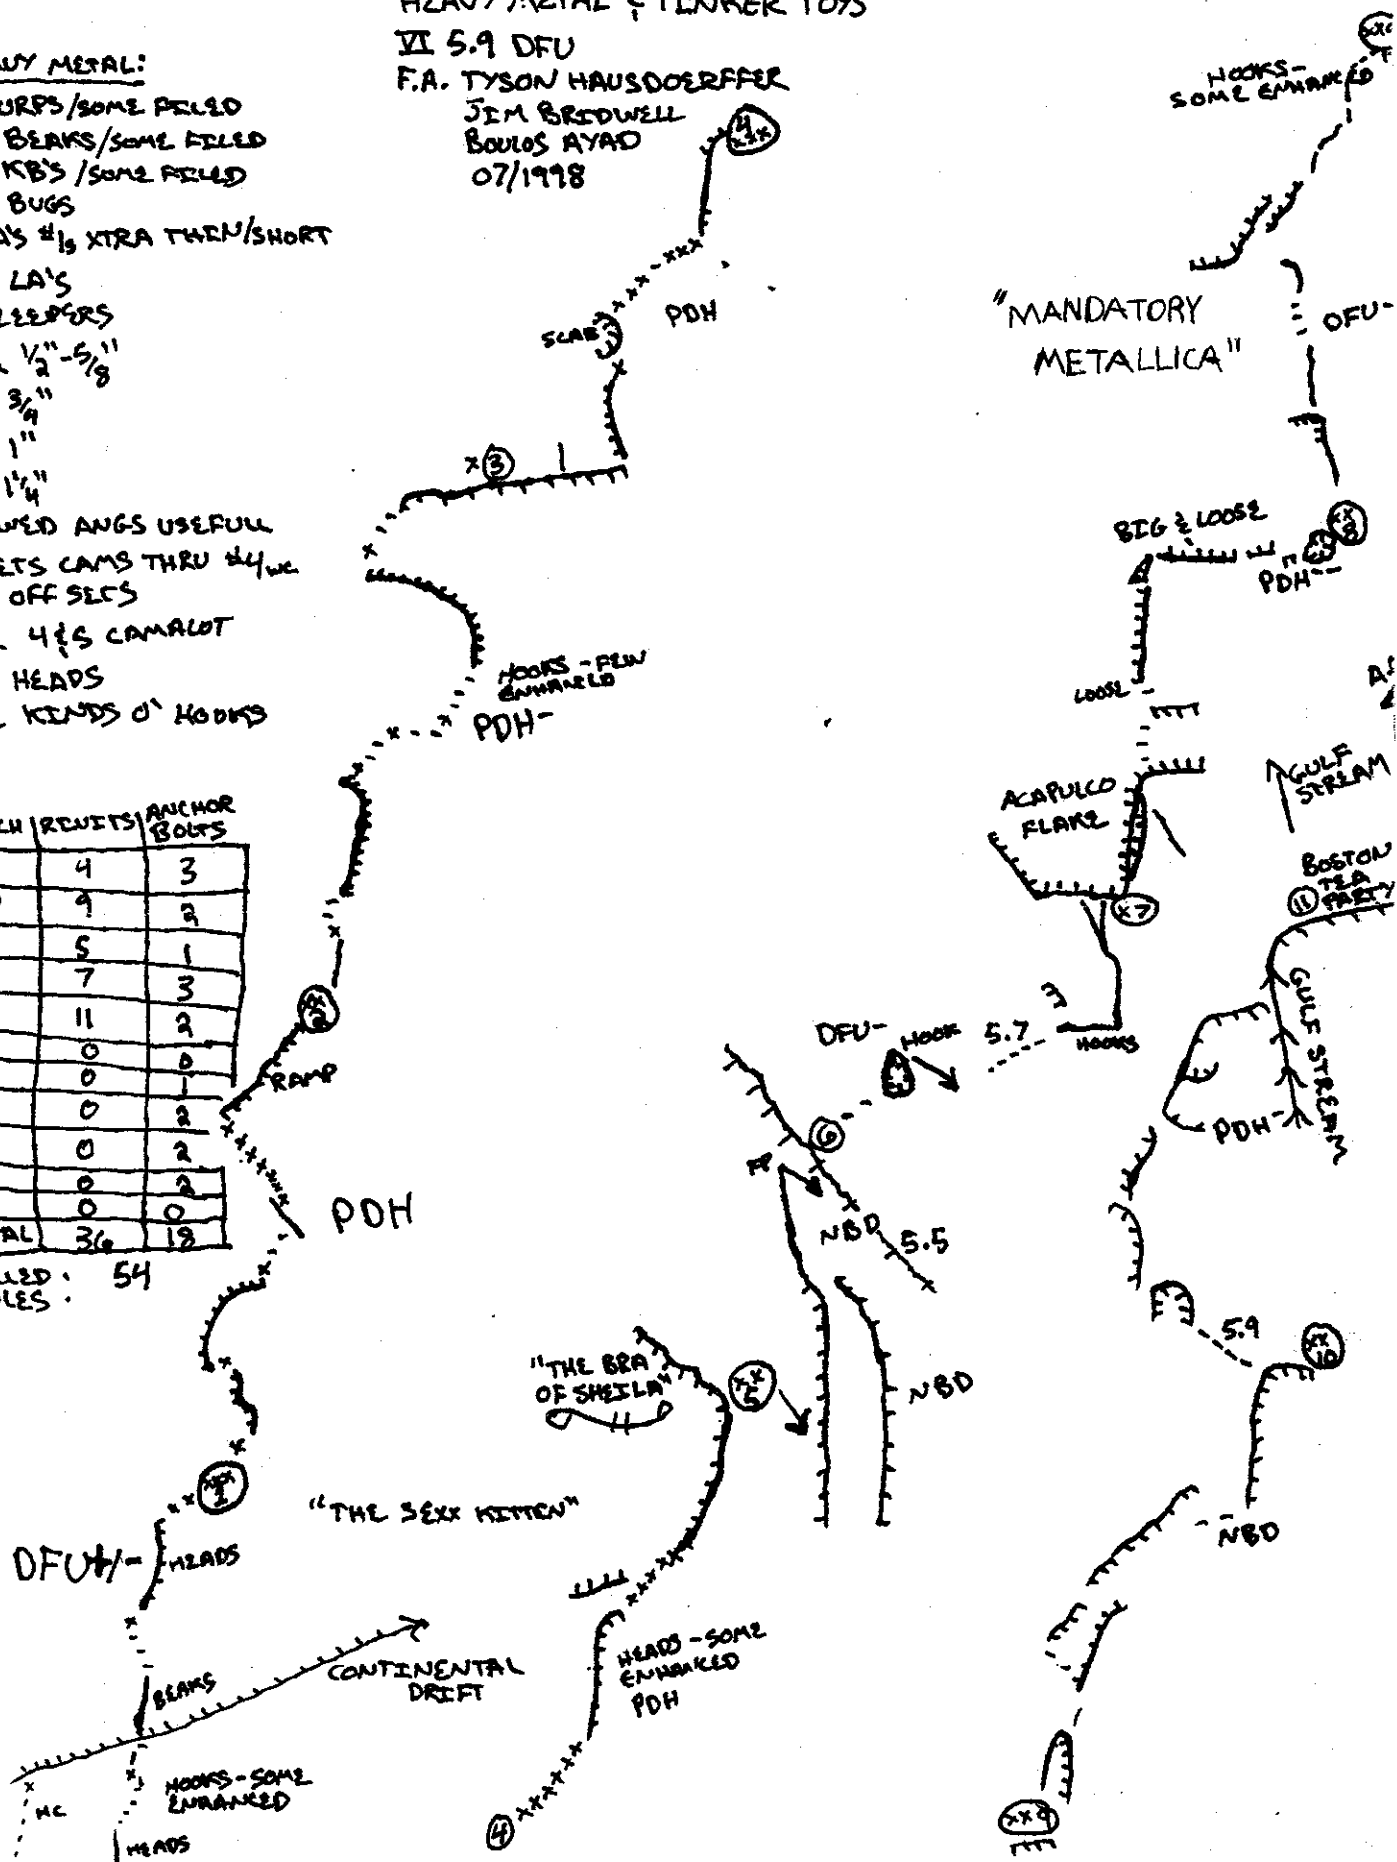 HEAVY METAL & TINKER TOYS
VI 5.9 DFU
F.A. TYSON HAUSDOERFFER
JIM BRIDWELL
BOULOS AYAD
07/1998
AVY METAL:
URPS/SOME FILED
BEAKS/SOME FILED
KB'S/SOME FILED
BUGS
A'S #1s XTRA THIN/SHORT
LA'S
LEEPERS
1/2"-5/8"
3/4"
1"
1 1/4"
WED ANGS USEFULL
ETS CAMS THRU #4 WC
OFF SETS
4 & 5 CAMALOT
HEADS
KINDS O' HOOKS
CH RIVITS ANCHOR BOLTS
4 3
9 2
5 1
7 3
11 2
0 0
0 1
0 2
0 2
0 2
0 0
TAL 36 18
LLED: 54
LES:
4 xxx
PDH
SCAB
x 3
HOOKS-FEW
ENHANCED
PDH-
xx 2
RAMP
PDH
xxx 1
"THE SEXX KITTEN"
DFU+/-
HEADS
BEAKS
CONTINENTAL
DRIFT
HOOKS-SOME
ENHANCED
HC
HEADS
"THE BRA
OF SHEILA"
xx 5
HEADS-SOME
ENHANCED
PDH
4
NBD
FP
NBD
5.5
6
DFU-
HOOK
5.7
HOOKS
x7
ACAPULCO
FLAKE
LOOSE
BIG & LOOSE
PDH--
xx 8
"MANDATORY
METALLICA"
DFU-
HOOKS-
SOME ENHANCED
GULF
STREAM
BOSTON
TEA
PARTY
11
GULF STREAM
PDH-
5.9
xx 10
NBD
xx9